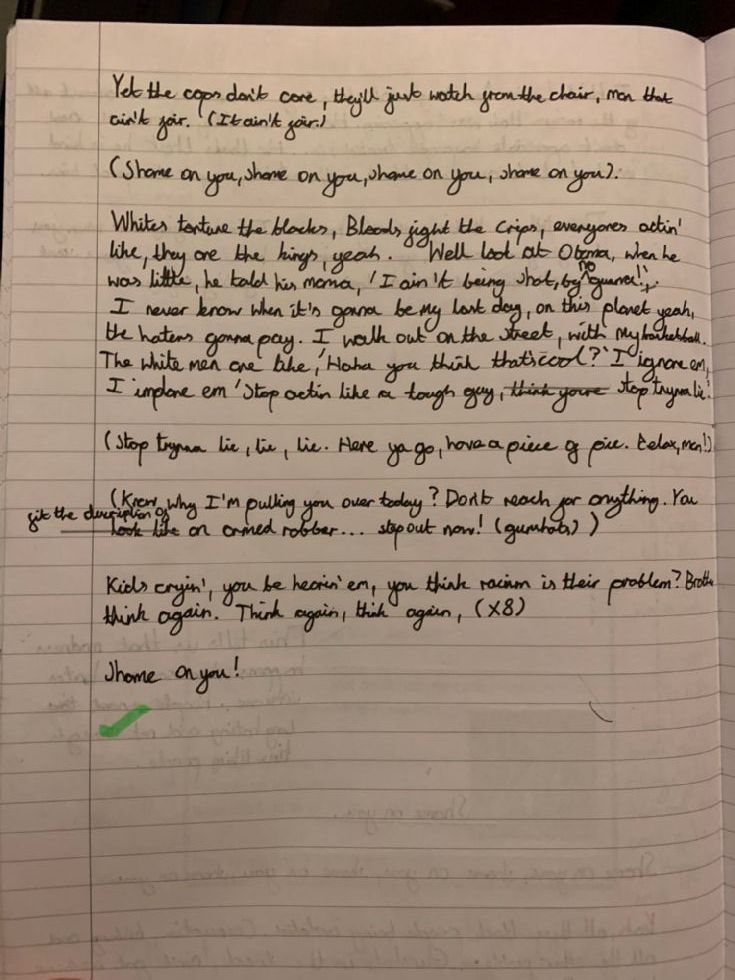 Yet the cops don't care, they'll just watch from the chair, man that
ain't fair. (It ain't fair.)
(Shame on you, shame on you, shame on you, shame on you).
Whites torture the blacks, Bloods fight the Crips, everyones actin'
like, they are the kings, yeah. Well look at Obama, when he
was little, he told his mama, 'I ain't being shot, by no gunner!'.
I never know when it's gonna be my last day, on this planet yeah,
the haters gonna pay. I walk out on the street, with my basketball.
The white men are like, 'Haha you think that's cool?' I ignore em,
I implore em 'Stop actin like a tough guy, think youre stop trynna lie'.
(Stop trynna lie, lie, lie. Here ya go, have a piece of pie. Relax, man!)
(Know why I'm pulling you over today? Don't reach for anything. You
fit the description of look like an armed robber... step out now! (gunshots))
Kids cryin', you be hearin' em, you think racism is their problem? Brotha
think again. Think again, think again, (x8)
Shame on you!